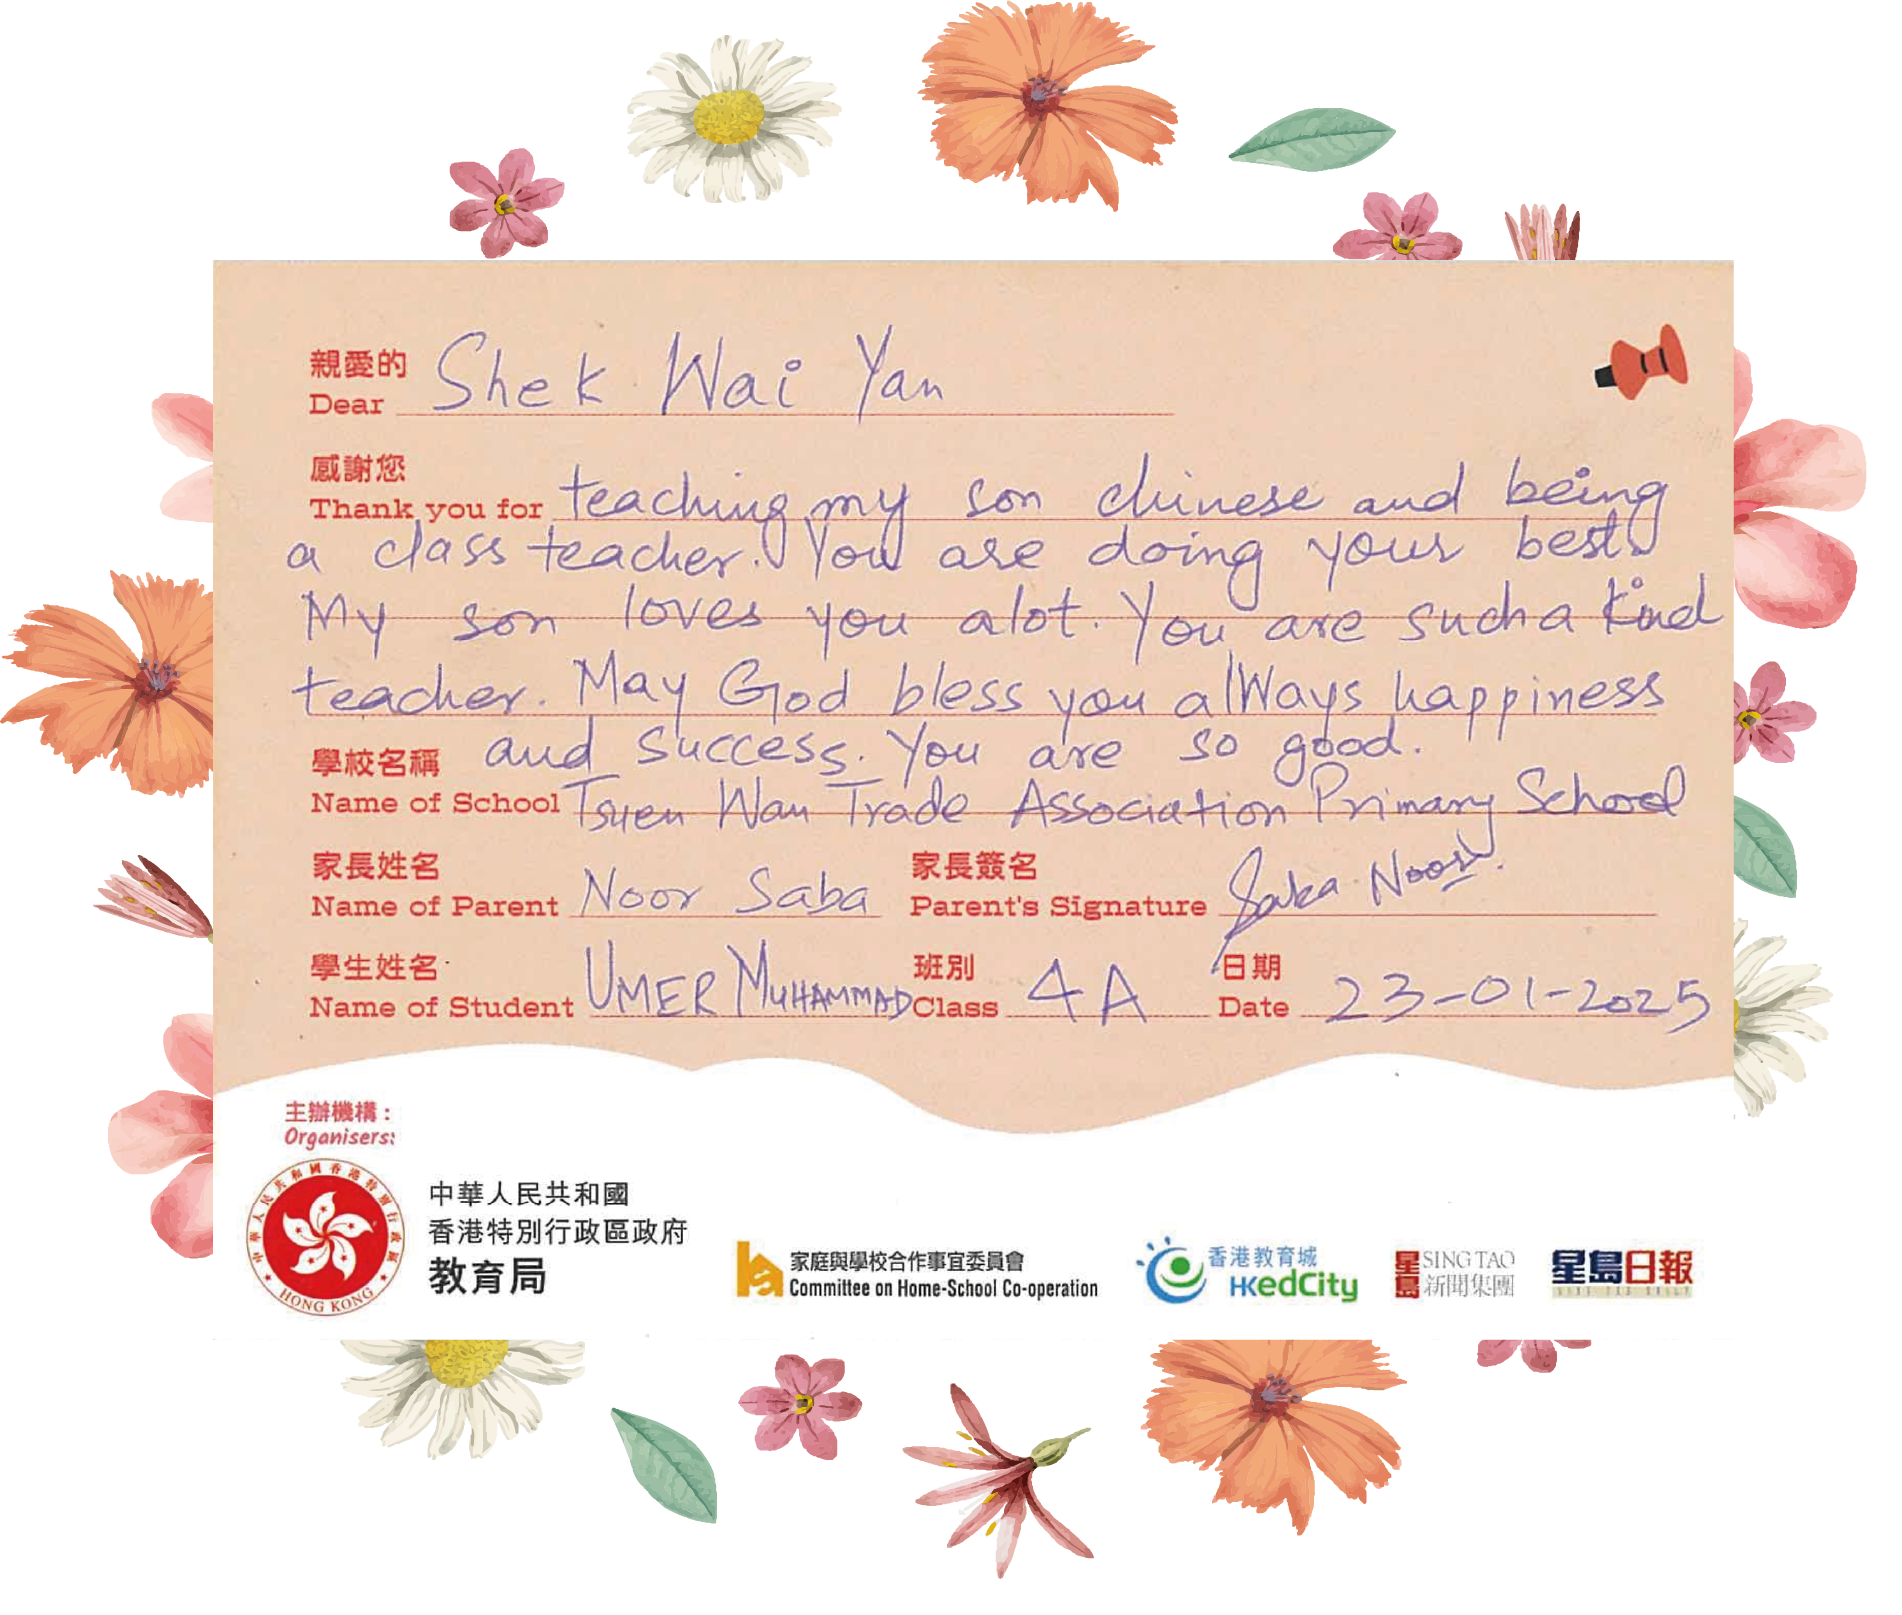 親愛的
Dear Shek Wai Yan
感謝您
Thank you for teaching my son chinese and being
a class teacher. You are doing your best.
My son loves you alot. You are such a kind
teacher. May God bless you alWays happiness
and success. You are so good.
學校名稱
Name of School Tsuen Wan Trade Association Primary School
家長姓名 家長簽名
Name of Parent Noor Saba Parent's Signature Saba Noor.
學生姓名 班別 日期
Name of Student UMER MUHAMMAD Class 4A Date 23-01-2025
主辦機構:
Organisers:
中華人民共和國香港特別行政區
HONG KONG
中華人民共和國
香港特別行政區政府
教育局
家庭與學校合作事宜委員會
Committee on Home-School Co-operation
香港教育城
HKedCity
星島 SING TAO
新聞集團
星島日報
SING TAO DAILY